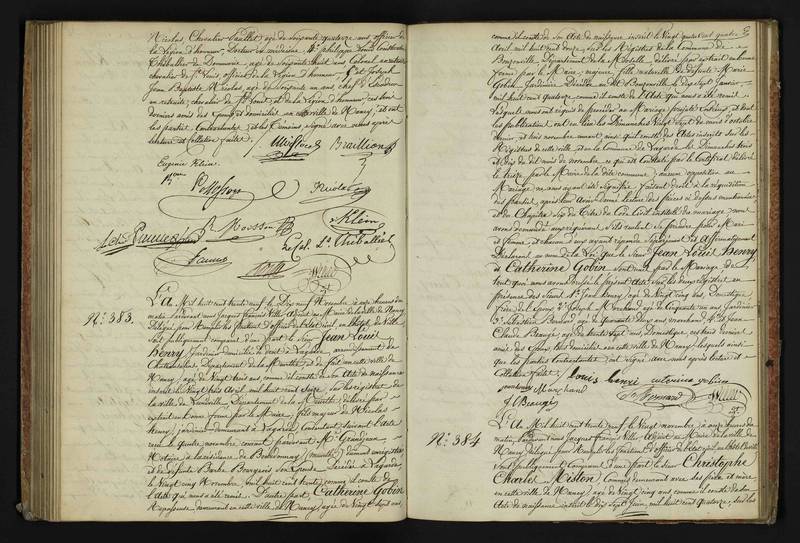 Nicolas, Chevalier Saullet, agé de soixante quatorze ans officier de
la légion d'honneur, Docteur en médecine, 4° philippe Louis
Chevallier de Dommarie, agé de soixante huit ans, Colonel en retraite
chevalier de St Louis, officier de la légion d'honneur, et Joseph
Jean Baptiste Nicolas, agé de soixante un ans, chef d'Escadron
en retraite, chevalier de St Louis et de la Légion d'honneur, ces trois
derniers amis des Epoux et domiciliés en cette ville de Nancy, et ont
les parties Contractantes et les témoins signé avec nous après
lecture et collation faite.
Eugenie Klein
Braillion
Nicolas
Mosson
Klein
Le Col. Le Chevallier
N° 383.
L'an Mil huit cent trente neuf le Dix neuf Novembre à onze heures du
matin, pardevant nous Jacques François Villers Adjoint au Maire de la ville de Nancy
Délégué pour remplir les fonctions d'officier de l'Etat civil, en l'hôtel de Ville
sont publiquement comparus d'une part le sieur Jean Louis
Henry Jardinier domicilié de droit à Lagarde, arrondissement de
Château Salins, Département de la Meurthe et de fait en cette ville de
Nancy, agé de Vingt trois ans comme il conste de son Acte de naissance
inscrit le Vingt trois Avril mil huit cent seize, sur les registres de
la ville de Lunéville Département de la Meurthe délivré par
extrait en bonne forme par le Maire, fils majeur de Nicolas
Henry, jardinier demeurant à Lagarde, Consentant suivant l'acte
reçu le quatre novembre courant pardevant Me Grandjean
Notaire à la résidence de Bourdonnay (meurthe) dûment enregistré
et de defunte Barbe Bourgeois son épouse Décédée à Lagarde,
le Vingt cinq Novembre, mil huit cent trente, comme il conste de
l'acte qui nous a été remis. D'autre part, Catherine Gobin
Repasseuse demeurant en cette ville de Nancy, agée de Vingt sept ans,
comme il conste de son Acte de naissance inscrit le Vingt quatre
Avril mil huit cent douze, sur les Registres de la Commune de
Bouzonville, Département de la Moselle, délivré par extrait en bonne
forme par le Maire, majeure, fille naturelle de defunte Marie
Gobin Jardinière Décédée au dit Bouzonville le dix sept Janvier
mil huit cent quatorze comme il conste de l'Acte qui nous a été remis
Lesquels nous ont requis de procéder au Mariage projeté entre eux, et dont
les publications ont eu lieu les Dimanches Vingt sept du mois d'octobre
dernier, et trois novembre courant, ainsi qu'il conste des Actes inscrits sur les
Registres de cette ville, et en la Commune de Lagarde les Dimanches trois
et dix du dit mois de novembre, ce qui est constaté par le Certificat délivré
le treize par le Maire de la dite commune; aucune opposition au
Mariage ne nous ayant été signifiée, faisant droit à la réquisition
des parties, après leur avoir donné lecture des pièces ci dessus mentionnées
et du Chapitre Six du Titre du Code civil intitulé du mariage, nous
avons demandé au futur époux et à la future s'ils veulent se prendre pour Mari
et femme, et chacun d'eux ayant répondu séparément et affirmativement
Déclarons au nom de la Loi que le Sieur Jean Louis Henry
et Catherine Gobin, sont unis par le Mariage; de
tout quoi nous avons dressé le présent Acte sur les deux registres en
presence des sieurs 1° Jean Henry, agé de Vingt six ans, Domestique
frère de l'époux 2° Joseph Marchand agé de Cinquante un ans, Jardinier
3° Sébastien agé de quarante deux ans, marchand, 4° et Jean
Claude Beaugé, agé de trente sept ans, Domestique, ces trois derniers
amis des Epoux, tous domiciliés en cette ville de Nancy, lesquels ainsi
que les parties Contractantes ont signé avec nous après lecture et
Collation faite.
Louis henri
caterine gobin
Jean henry
Marchand
J C Beaugé
N° 384
L'An Mil huit cent trente neuf le Vingt novembre, à onze heures du
matin, pardevant nous Jacques François Villers Adjoint au Maire de la ville de
Nancy Délégué pour Remplir les fonctions d'officier de l'Etat civil en l'hôtel de ville
sont publiquement comparus d'une part le sieur Christophe
Charles Miston, Commis demeurant avec ses père et mère
en cette ville de Nancy, agé de Vingt cinq ans comme il conste de son
Acte de naissance inscrit le dix sept Juin, mil huit cent quatorze, sur les